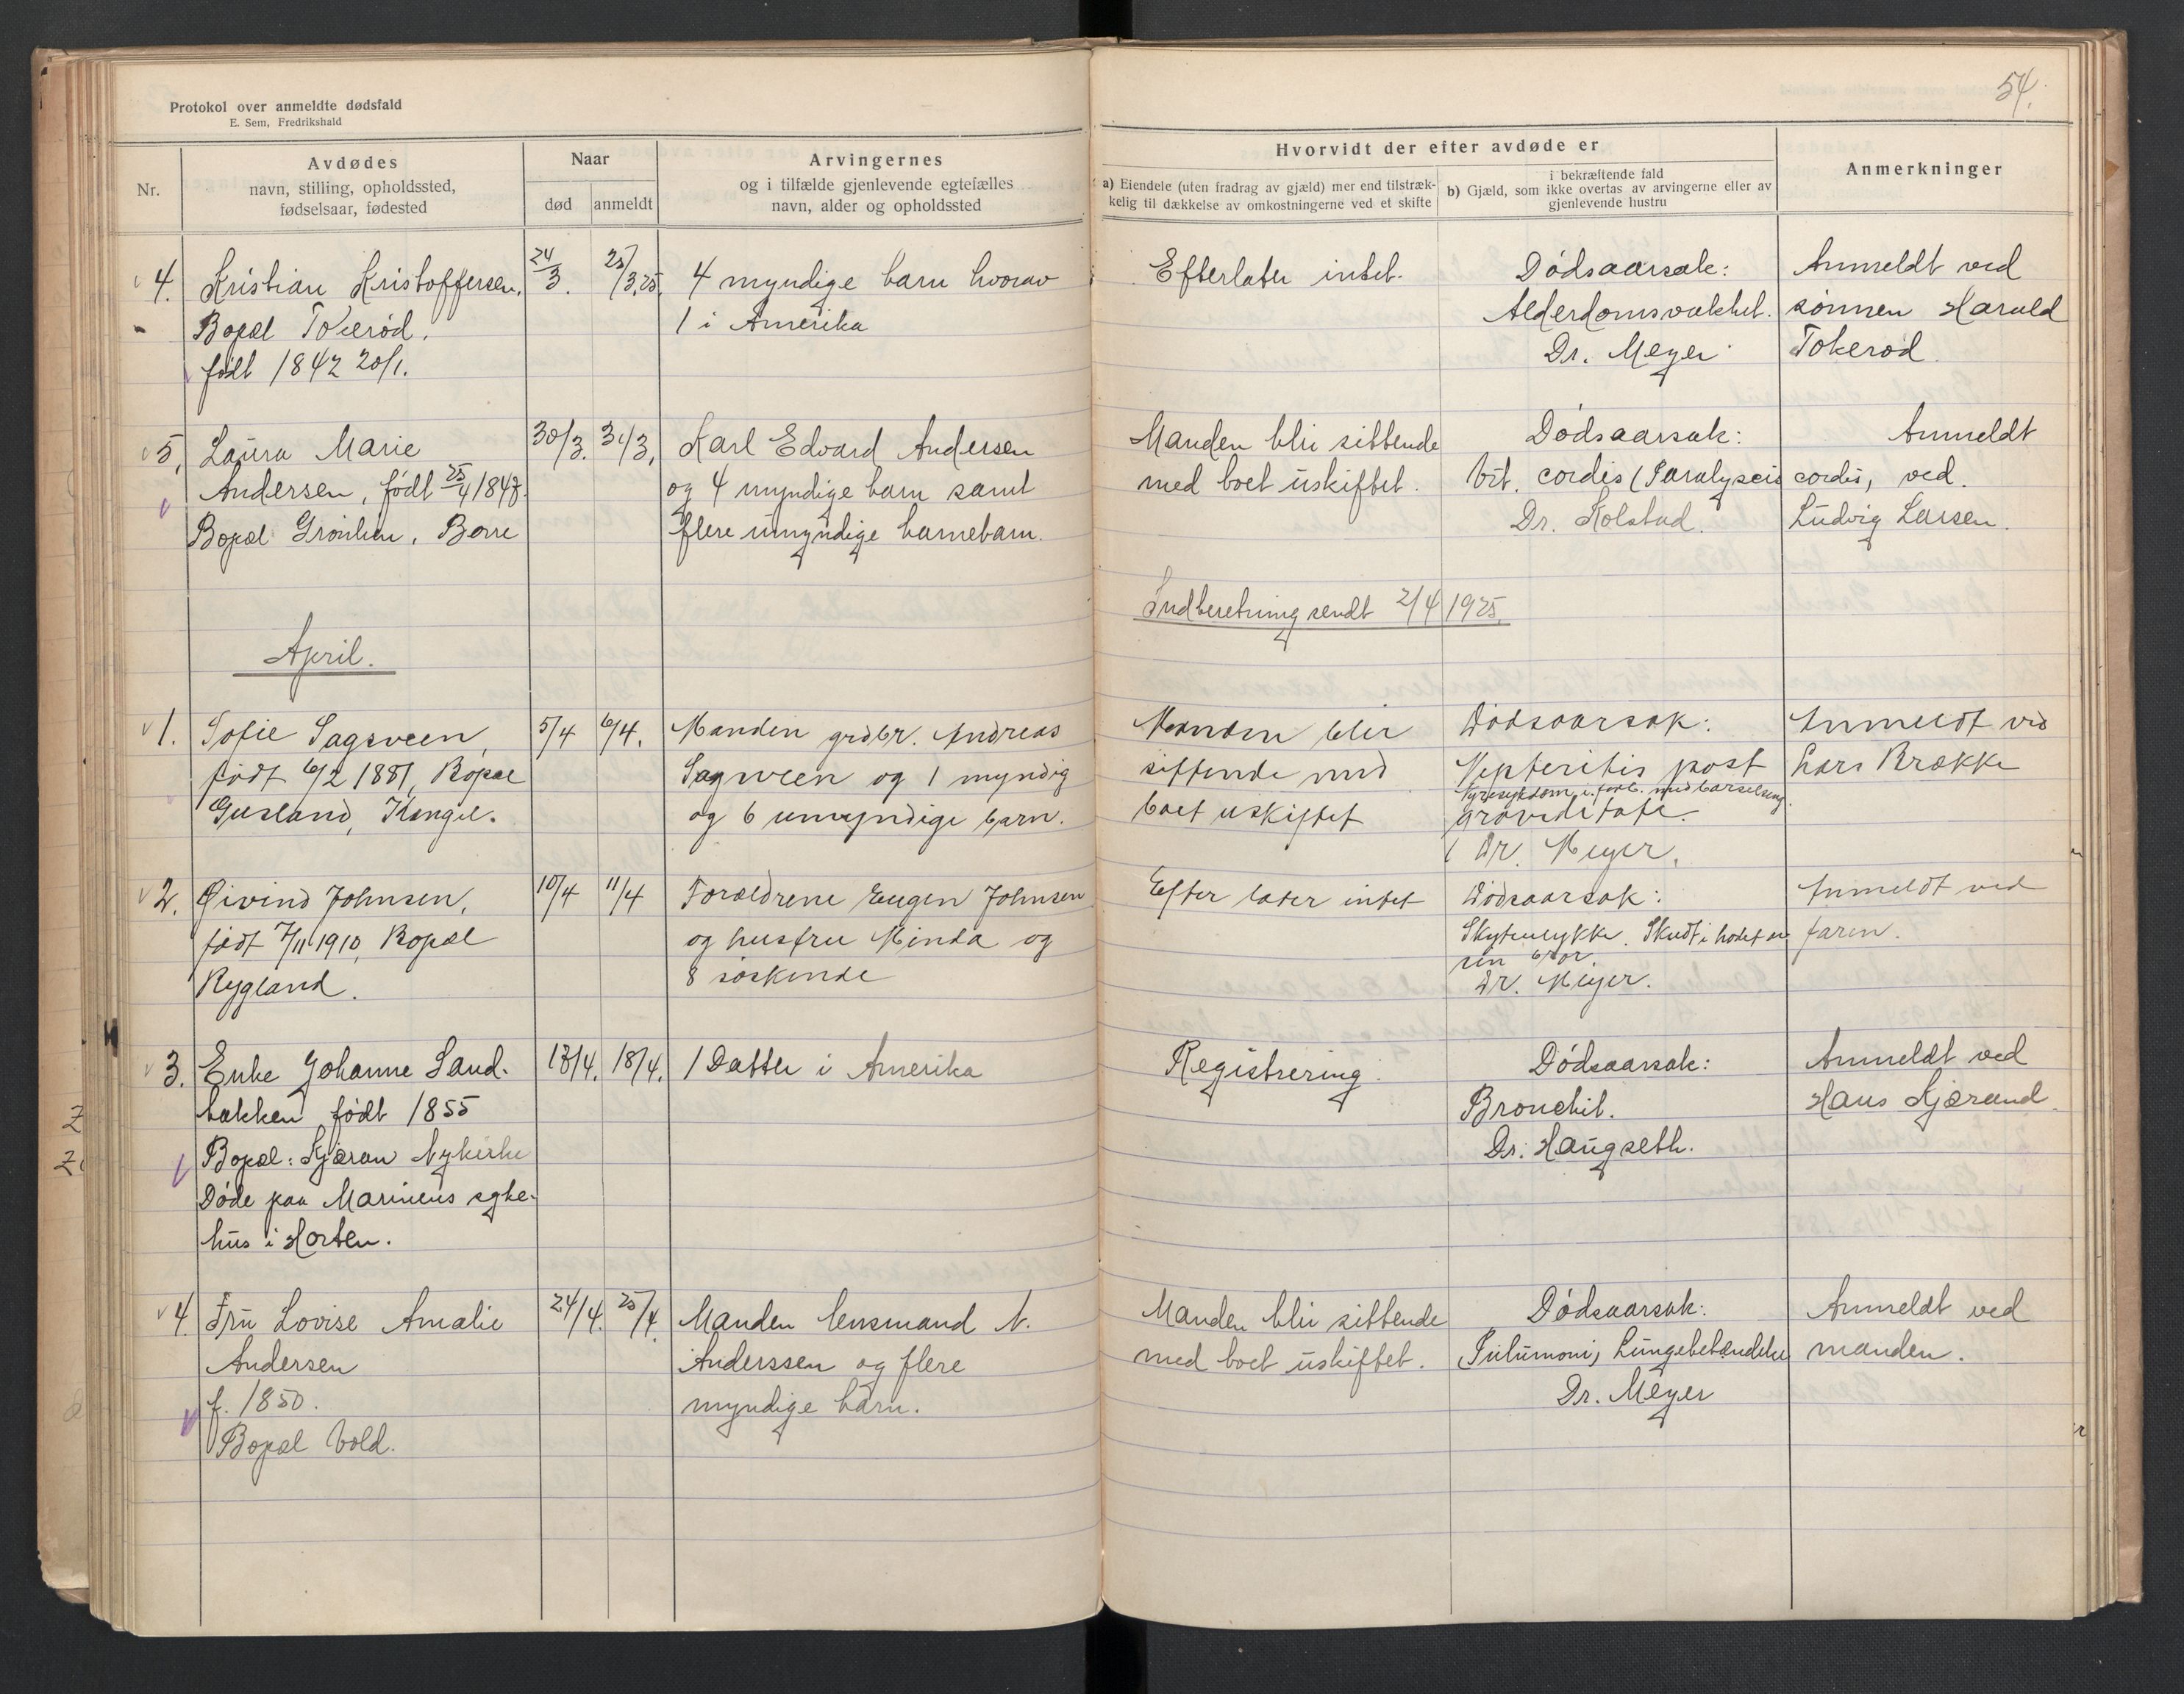 54.
Protokol over anmeldte dødsfald
E. Sem, Fredrikshald
Nr.
Avdødes
navn, stilling, opholdssted,
fødselsaar, fødested
Naar
død
anmeldt
Arvingernes
og i tilfælde gjenlevende egtefælles
navn, alder og opholdssted
Hvorvidt der efter avdøde er
a) Eiendele (uten fradrag av gjæld) mer end tilstræk-
kelig til dækkelse av omkostningerne ved et skifte
i bekræftende fald
b) Gjæld, som ikke overtas av arvingerne eller av
gjenlevende hustru
Anmerkninger
4.
Kristian Kristoffersen,
Bopæl Tokerød.
født 1842 20/1.
24/3.
25/3.25.
4 myndige barn hvorav
1 i Amerika
Efterlater intet.
Dødsaarsak:
Alderdomsvakhet.
Dr. Meyer
Anmeldt ved
sønnen Harald
Tokerød.
5.
Laura Marie
Andersen, født 25/4 1848.
Bopæl Grønlien, Borre
30/3.
31/3.
Karl Edvard Andersen
og 4 myndige barn samt
flere umyndige barnebarn.
Manden blir sittende
med boet uskiftet.
Dødsaarsak:
Vit. cordis (Paralyseis cordis,
Dr. Kolstad.
Anmeldt
ved
Ludvig Larsen.
Indberetning sendt 2/4 1925.
April.
1.
Sofie Sagsveen,
født 6/2 1881, Bopæl
Gusland,
5/4
6/4.
Manden grdbr. Andreas
Sagsveen og 1 myndig
og 6 umyndige barn.
Manden blir
sittende med
boet uskiftet
Dødsaarsak:
post
Nyresykdom i forb. med barselseng.
graviditate.
Dr. Meyer.
Anmeldt ved
Lars Brække
2.
Øivind Johnsen,
født 7/11 1910, Bopæl
Rygland.
10/4
11/4
Forældrene Eugen Johnsen
og hustru Minda og
8 søskende
Efter later intet
Dødsaarsak:
Skyteulykke. Skudt i hodet av
sin bror.
Dr. Meyer.
Anmeldt ved
faren.
3.
Enke Johanne Sand-
bakken født 1855
Bopæl: Kjæran Nykirke
Døde paa Marinens syke-
hus i Horten.
13/4.
18/4.
1 Datter i Amerika
Registrering.
Dødsaarsak:
Bronchit.
Dr. Haugseth.
Anmeldt ved
Hans Kjærand.
4.
Fru Lovise Amalie
Andersen
f. 1850.
Bopæl Vold.
24/4.
25/4.
Manden lensmand N.
Anderssen og flere
myndige barn.
Manden blir sittende
med boet uskiftet.
Dødsaarsak:
Lungebetændelse
Dr. Meyer
Anmeldt ved
manden.